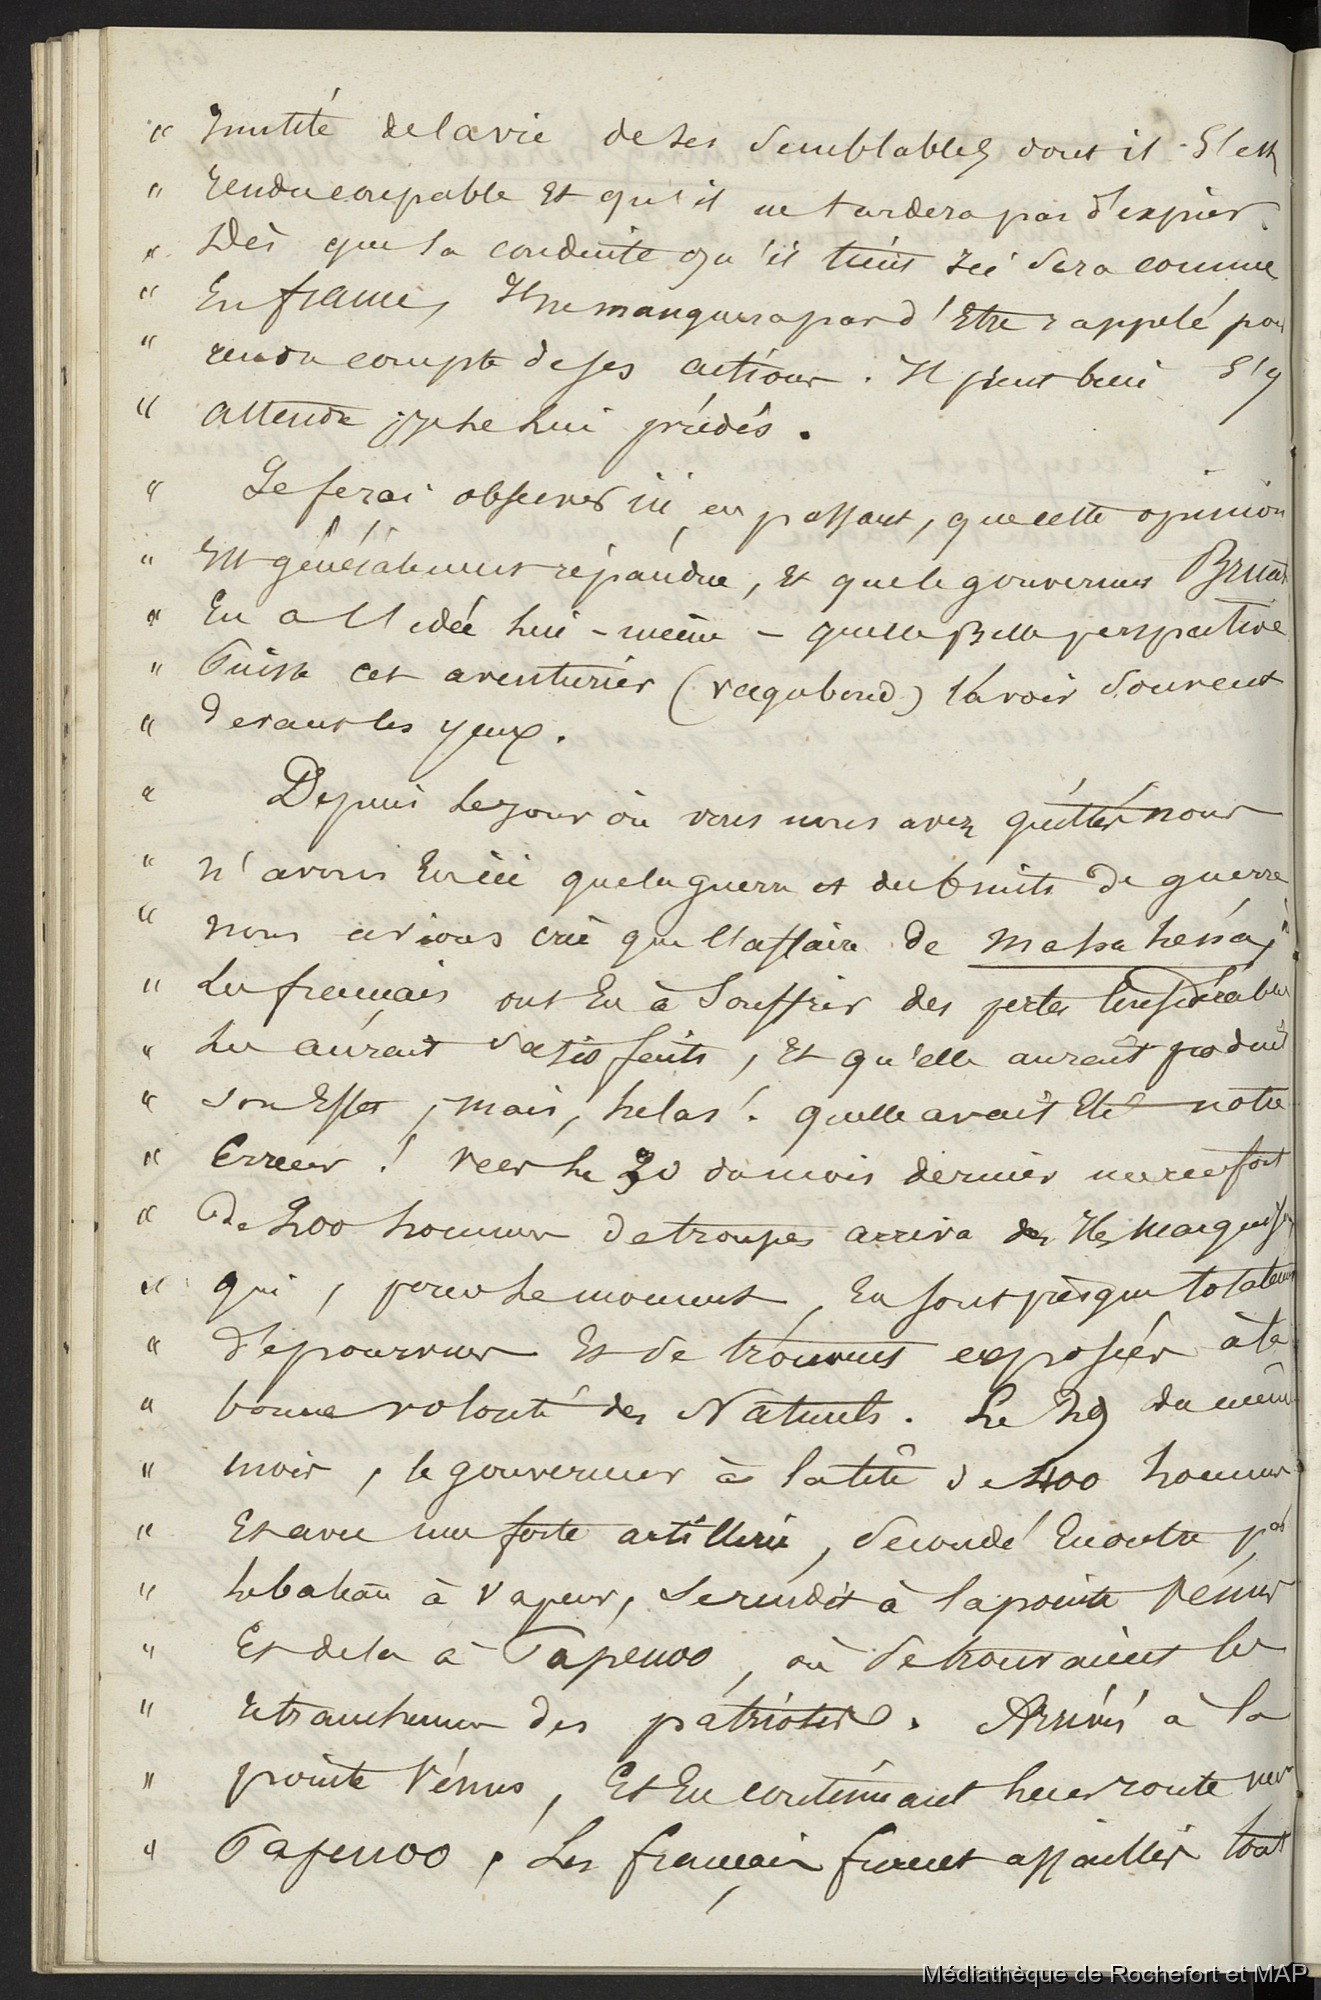 " Inutité de la vie de ses semblables dont il s'est
" rendu coupable et qu'il ne tardera pas d'expier.
" Dès que la conduite qu'il tient ici sera connue
" En france, Il ne manquera pas d'Etre rappelé pour
" rendre compte de ses actions. Il peut bien s'y
" attendre je le lui prédis.
" Je ferai observer ici en passant, que cette opinion
" Est généralement répandue, et que le gouverneur Bruat
" En a l'idée lui-même - quelle Belle perspective
" Puisse cet aventurier (vagabond) l'avoir souvent
" devant les yeux.
" Depuis le jour où vous nous avez quittés nous
" n'avons Eu ici que la guerre et des bruits de guerre
" nous avions crû que l'affaire de Mahahéna, où
" Les français ont Eu à Souffrir des pertes considérables
" Les aurait satisfaits, Et qu'elle aurait produit
" son Effet, mais, helas! quelle avait Eté notre
" Erreur! vers le 30 du mois dernier un renfort
" De 200 hommes de troupes arriva des Iles Marquises
" qui, pour le moment, En sont presque totalement
" dépourvues Et se trouvent exposées à la
" bonne volonté des Naturels. Le 29 du même
" mois, le gouverneur à la tête de 400 hommes
" Et avec une forte artillerie, secondé En outre par
" le bateau à vapeur, se rendit à la pointe Vénus
" Et de là à Papenoo, où se trouvaient les
" retranchemens des patriotes. Arrivés à la
" pointe Vénus, Et En continuant leur route vers
" Papenoo, Les français furent assaillis tout
Médiathèque de Rochefort et MAP